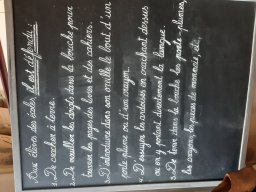 Aux élèves des écoles, il est défendu :
1. De cracher à terre.
2. De mouiller les doigts dans la bouche pour
tourner les pages des livres et des cahiers.
3. D'introduire dans son oreille le bout d'un
porte-plume ou d'un crayon.
4. D'essuyer les ardoises en crachant dessus
ou en y portant directement la langue.
5. De tenir dans la bouche les porte-plumes,
les crayons, les pièces de monnaie, etc.